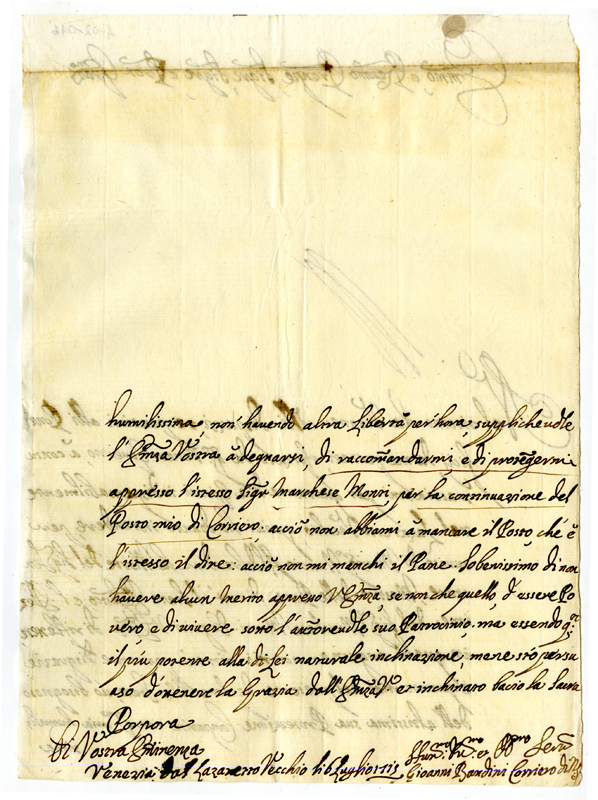 humilissima non havendo altra Libertà per hora, supplichevole
l'Emza Vostra à degnarsi, di raccomandarmi e di protegermi
appresso l'istesso Sigr Marchese Monti per la continuazione del
Posto mio di Corriero. acciò non abbiami à mancare il Posto che è
l'istesso il dire: acciò non mi manchi il Pane. So benissimo di non
havere alcun Merito appresso V. Emza, se non che quello d'essere Po
vero e di vivere sotto l'autorevole suo Patrocinio, ma essendo
il più potente alla di Lei naturale inclinazione, me ne stò persu
aso d'ottenere la Grazia dall'Emza V. et inchinato bacio la Sacra
Porpora
Di Vostra Eminenza
Venezia, dal Lazaretto Vecchio li 6 Luglio 1715
Giovanni Bandini Corriero di